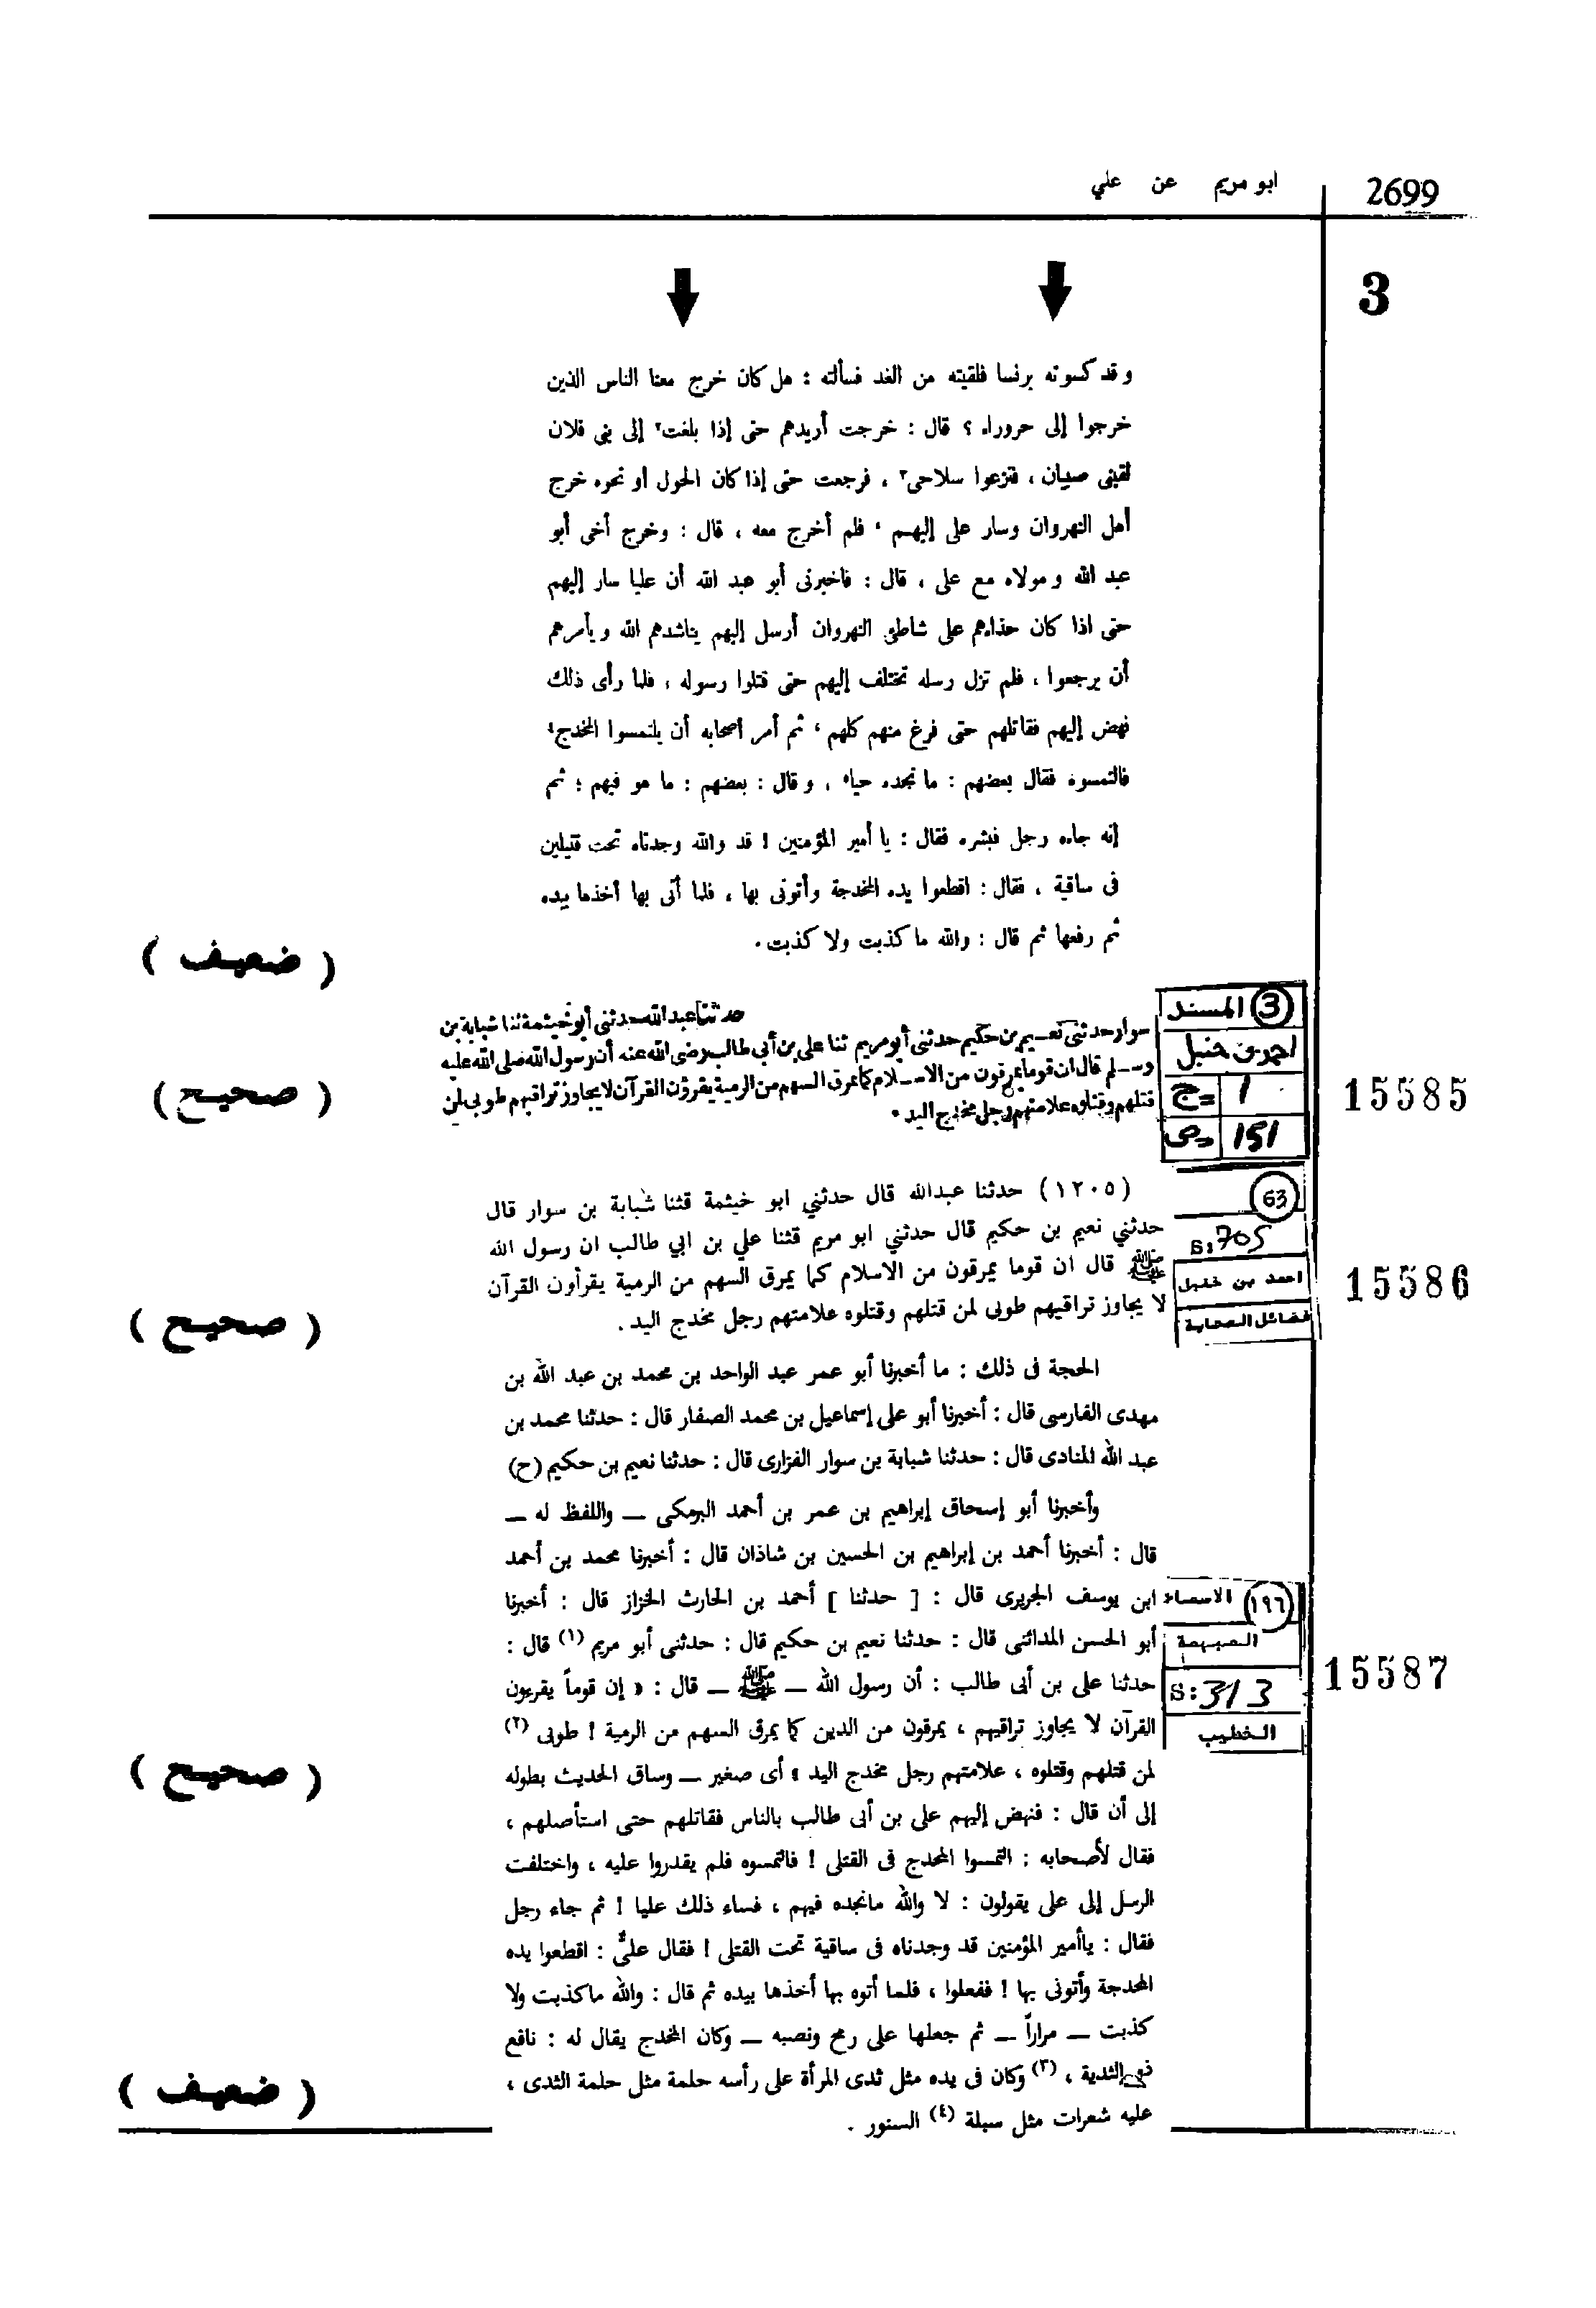 2699
ابو مريم عن علي
3
وقد كسوته برنسا فلقيته من الغد فسألته : هل كان خرج معنا الناس الذين
خرجوا إلى حروراء ؟ قال : خرجت أريدهم حتى إذا بلغت٢ إلى بنى فلان
لقينى صبيان ، فنزعوا سلاحى٣ ، فرجعت حتى إذا كان الحول أو نحوه خرج
أهل النهروان وسار على إليهم ، فلم أخرج معه ، قال : وخرج أخى أبو
عبد الله ومولاه مع على ، قال : فاخبرنى أبو عبد الله أن عليا سار إليهم
حتى اذا كان حذاءهم على شاطئ النهروان أرسل إليهم يناشدهم الله ويأمرهم
أن يرجعوا ، فلم تزل رسله تختلف إليهم حتى قتلوا رسوله ، فلما رأى ذلك
نهض إليهم فقاتلهم حتى فرغ منهم كلهم ، ثم أمر أصحابه أن يلتمسوا المخدج٤
فالتمسوه فقال بعضهم : ما نجده حيا٥ ، وقال : بعضهم : ما هو فيهم ؛ ثم
إنه جاءه رجل فبشره فقال : يا أمير المؤمنين ! قد والله وجدناه تحت قتيلين
فى ساقية ، فقال : اقطعوا يده المخدجة وأتونى بها ، فلما أتى بها أخذها بيده
ثم رفعها ثم قال : والله ما كذبت ولا كذبت .
( ضعيف )
حدثنا عبد الله حدثنى أبو خيثمة ثنا شبابة بن
سوار حدثنى نعيم بن حكيم حدثنى أبو مريم ثنا على بن أبى طالب رضى الله عنه أن رسول الله صلى الله عليه
وسلم قال ان قوما يمرقون من الاسلام كما يمرق السهم من الرمية يقرؤن القرآن لا يجاوز تراقيهم طوبى لمن
قتلهم وقتلوه علامتهم رجل مخدج اليد .
( صحيح )
3 المسند
احمد بن حنبل
ج= 1
ص= 151
15585
(١٢٠٥) حدثنا عبدالله قال حدثني ابو خيثمة قثنا شبابة بن سوار قال
حدثني نعيم بن حكيم قال حدثني ابو مريم قثنا علي بن ابي طالب ان رسول الله
ﷺ قال ان قوما يمرقون من الاسلام كما يمرق السهم من الرمية يقرأون القرآن
لا يجاوز تراقيهم طوبى لمن قتلهم وقتلوه علامتهم رجل مخدج اليد .
( صحيح )
63
S:705
احمد بن حنبل
فضائل الصحابة
15586
الحجة فى ذلك : ما أخبرنا أبو عمر عبد الواحد بن محمد بن عبد الله بن
مهدى الفارسى قال : أخبرنا أبو على إسماعيل بن محمد الصفار قال : حدثنا محمد بن
عبد الله المنادى قال : حدثنا شبابة بن سوار الفزارى قال : حدثنا نعيم بن حكيم (ح)
وأخبرنا أبو إسحاق إبراهيم بن عمر بن أحمد البرمكى — واللفظ له —
قال : أخبرنا أحمد بن إبراهيم بن الحسين بن شاذان قال : أخبرنا محمد بن أحمد
ابن يوسف الجريرى قال : [ حدثنا ] أحمد بن الحارث الخزاز قال : أخبرنا
أبو الحسن المدائنى قال : حدثنا نعيم بن حكيم قال : حدثنى أبو مريم (١) قال :
حدثنا على بن أبى طالب : أن رسول الله — ﷺ — قال : « إن قوماً يقريون
القرآن لا يجاوز تراقيهم ، يمرقون من الدين كما يمرق السهم من الرمية ! طوبى (٢)
لمن قتلهم وقتلوه ، علامتهم رجل مخدج اليد » أى صغير — وساق الحديث بطوله
إلى أن قال : فنهض إليهم على بن أبى طالب بالناس فقاتلهم حتى استأصلهم ،
فقال لأصحابه : التمسوا المخدج فى القتلى ! فالتمسوه فلم يقدروا عليه ، واختلفت
الرسل إلى على يقولون : لا والله مانجده فيهم ، فساء ذلك عليا ! ثم جاء رجل
فقال : ياأمير المؤمنين قد وجدناه فى ساقية تحت القتلى ! فقال علىٌّ : اقطعوا يده
المخدجة وأتونى بها ! ففعلوا ، فلما أتوه بها أخذها بيده ثم قال : والله ماكذبت ولا
كذبت — مراراً — ثم جعلها على رمح ونصبه — وكان المخدج يقال له : نافع
ذو الثدية ، (٣) وكان فى يده مثل ثدى المرأة على رأسه حلمة مثل حلمة الثدى ،
عليه شعرات مثل سبلة (٤) السنور .
( صحيح )
( ضعيف )
١٩٦ الاسماء
المبهمة
S:313
الخطيب
15587